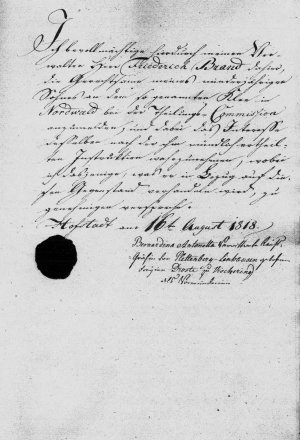 Ich bevollmächtige hierdurch meinen Ver-
walter Herr Friedrich Brand dahier,
die Gerechtsame meines minderjährigen
Sohnes an dem sogenannten Klei in
Nordwald bei der Theilungs-Commission
anzumelden, und dabei das Interesse
desselben nach der ihm mündlich ertheil-
ten Instruktion wahrzunehmen, wobei
ich dasjenige, was er in Bezug auf die-
sen Gegenstand verhandeln wird, zu
genehmigen verspreche.
Hofstadt am 16t August 1818.
Bernardina Antonetta
Gräfin von Plettenberg-Lenhausen geborne
Droste zu Vischering
als Vormünderin